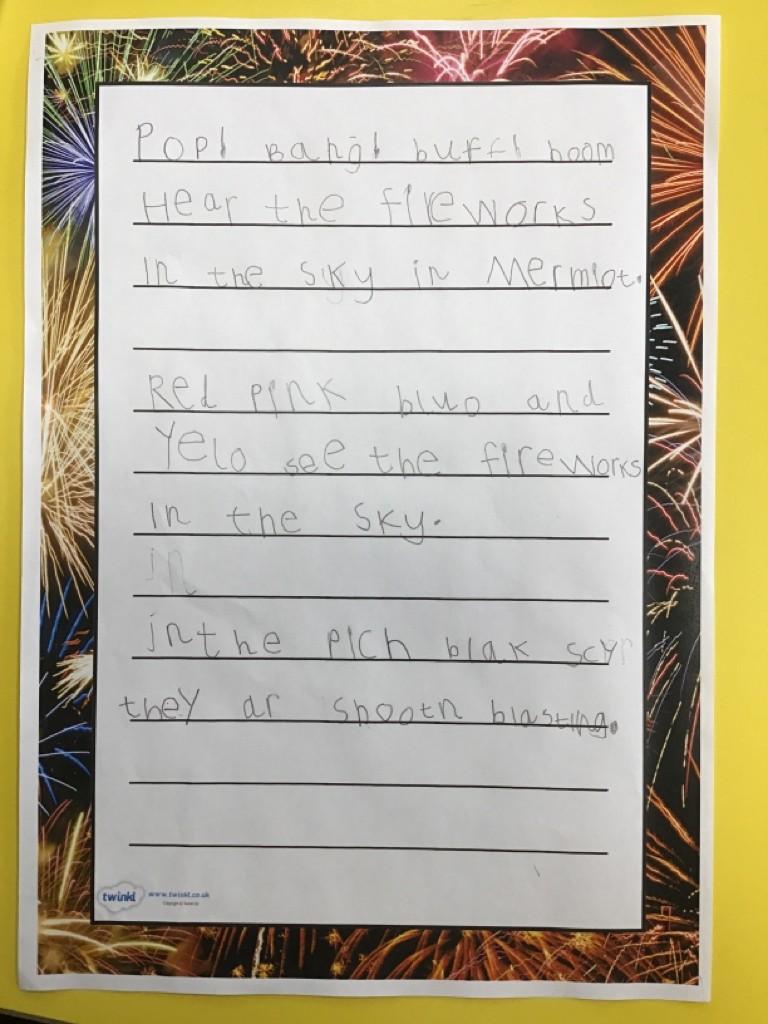 Pop! Bang! buff! boom
Hear the fireworks
in the sky in Mermiot.
Red pink bluo and
Yelo see the fireworks
in the sky.
in
in the pich blak scy
they ar shootn blasting.
twinkl www.twinkl.co.uk